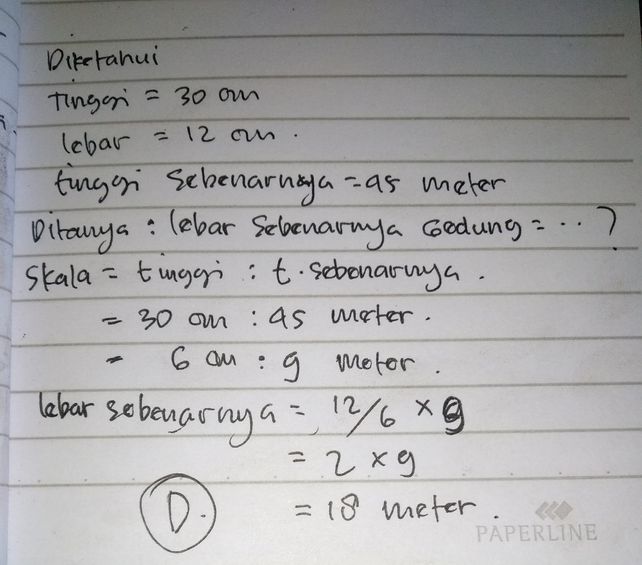 Diketahui
tinggi = 30 cm
lebar = 12 cm.
tinggi sebenarnya = 45 meter
Ditanya : lebar sebenarnya Gedung = ... ?
Skala = tinggi : t. sebenarnya.
= 30 cm : 45 meter.
= 6 cm : 9 meter.
lebar sebenarnya = 12/6 x 9
= 2 x 9
= 18 meter.
D.
PAPERLINE